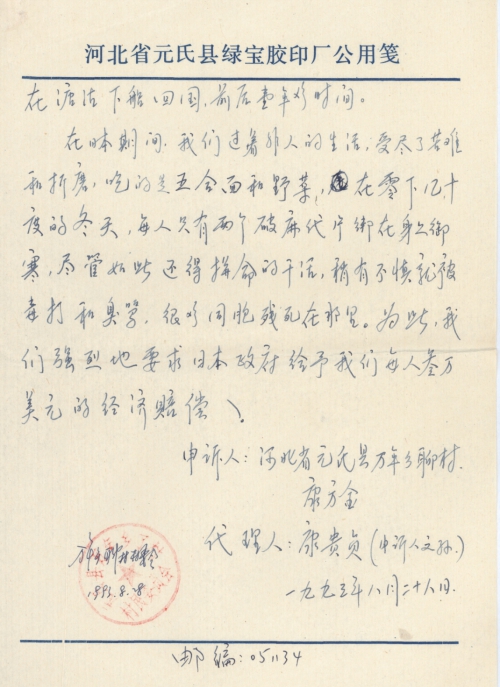 河北省元氏县绿宝胶印厂公用笺
在塘沽下船回国，前后壹年多时间。
在日本期间，我们过着非人的生活，受尽了苦难
和折磨，吃的是五合面和野菜，在零下几十
度的冬天，每人只有两个破麻代片绑在身上御
寒，尽管如此还得拼命的干活，稍有不慎就被
毒打和臭骂，很多同胞残死在那里。为此，我
们强烈地要求日本政府给予我们每人叁万
美元的经济赔偿。
申诉人：河北省元氏县万年乡聊村
康方金
代理人：康贵贞（申诉人之孙）
一九九五年八月二十八日.
1995.8.8
邮编：051134